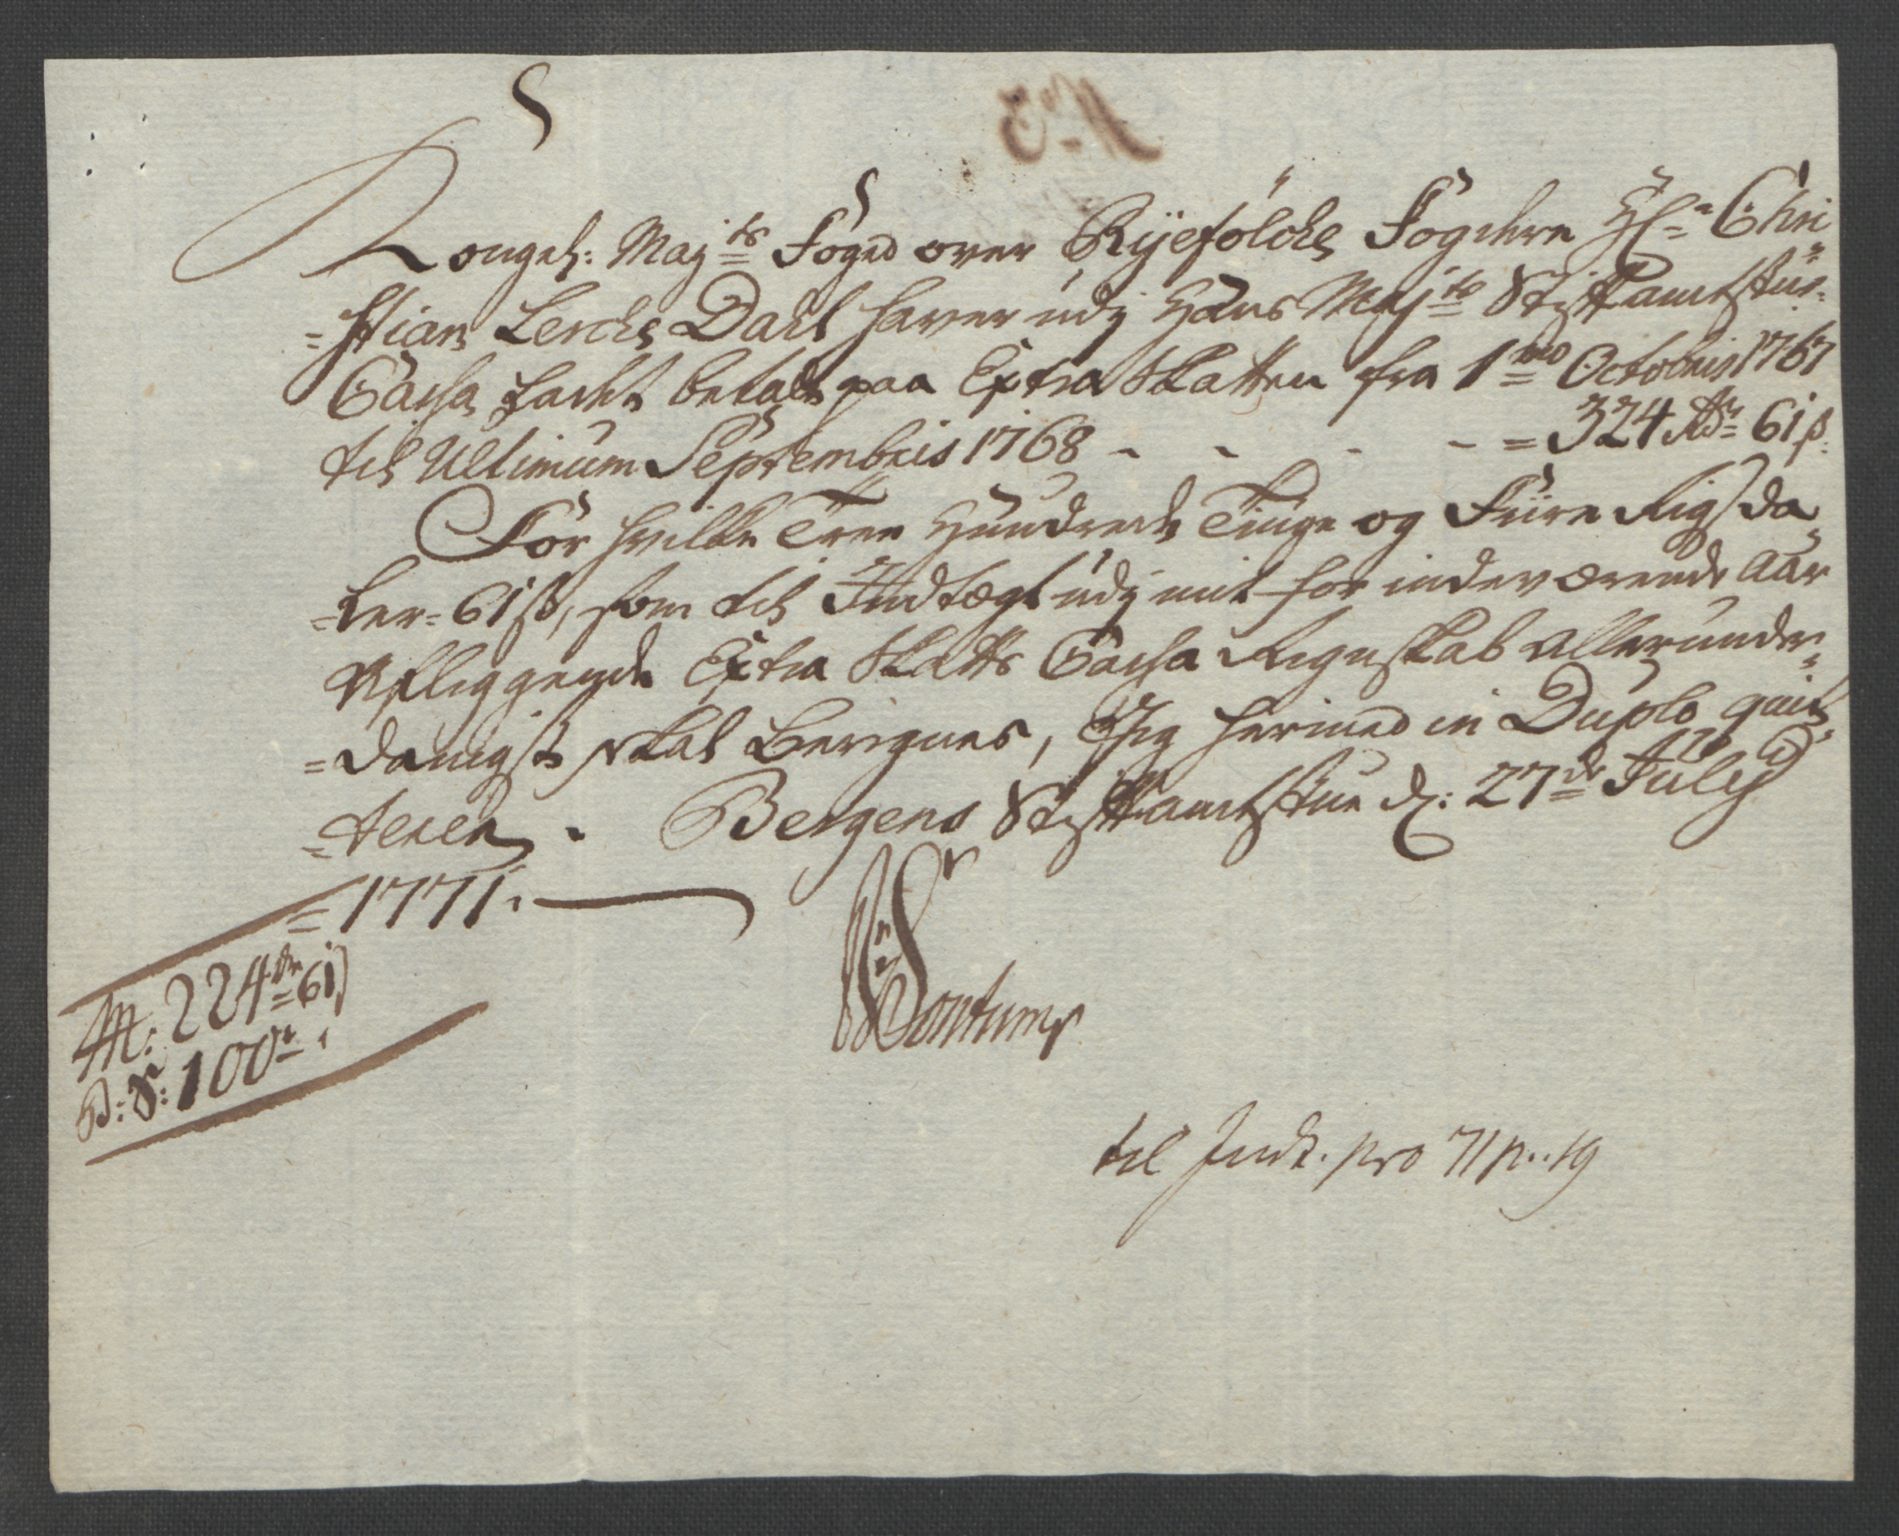 Kongel: Majts Foged over Ryefölcke Fögderie Hr Chri
=stian Lerche Dahl haver udj Hans Majts Stiftamtstue
Cassa ladet betale paa Extra Skatten fra 1mo Octobris 1767
til Ultimum Septembris 1768 - - - - = 324 Rdr 61 s.
For hvilke Tree Hundrede Tiuge og Fiire Rigsda
=ler 61 s, som til Indtægt udj mit for indeværende Aar
Aflæggende Extra Skatts Cassa Regnskab allerunder
=danigst skal Beregnes, Jeg hermed in Duplo quit
=terer. Bergens Stiftamtstue d: 27de Julij
= 1771.
M: 224 dr 61 s
B: S: 100 r.
Sontums
til Indt. pro 71 p. 19
No 3